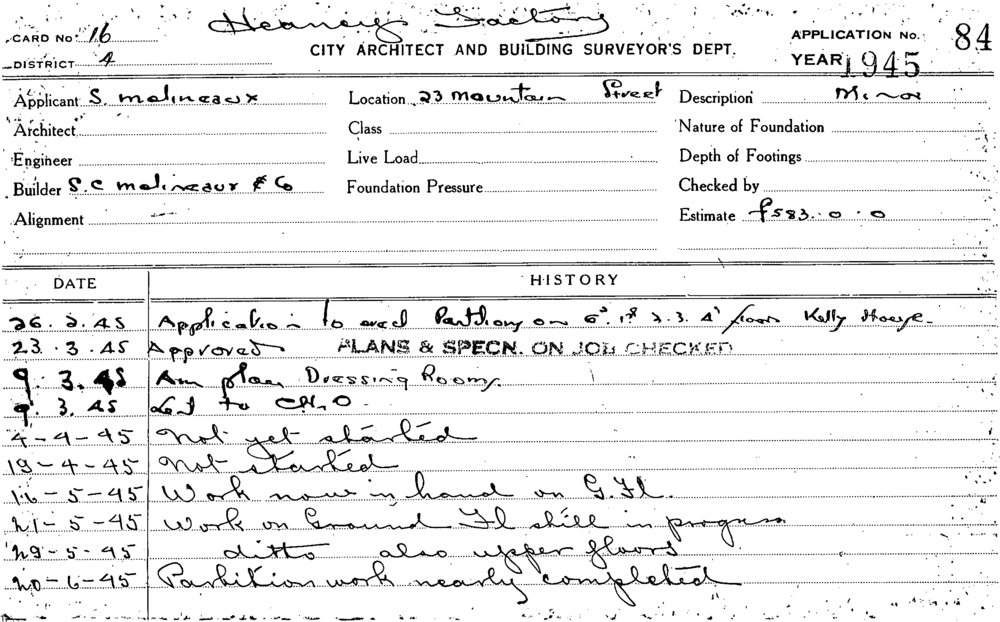 Heaney's Factory
CARD No. 16
CITY ARCHITECT AND BUILDING SURVEYOR'S DEPT.
APPLICATION No. 84
DISTRICT 4
YEAR 1945
Applicant S. Molineaux
Location 23 Mountain Street
Description Minor
Architect
Class
Nature of Foundation
Engineer
Live Load
Depth of Footings
Builder S.C Molineaux & Co
Foundation Pressure
Checked by
Alignment
Estimate £583.0.0
DATE HISTORY
26.2.45 Application to erect Partitions on G. 1st 2. 3. 4 floors Kelly House.
23.3.45 Approved PLANS & SPECN. ON JOB CHECKED
9.3.45 Am plan Dressing Rooms.
9.3.45 to C.H.O
4-4-45 Not yet started
19-4-45 Not started
16-5-45 Work now in hand on G. Fl.
21-5-45 Work on Ground Fl still in progress
29-5-45 ditto also upper floors
20-6-45 Partition work nearly completed